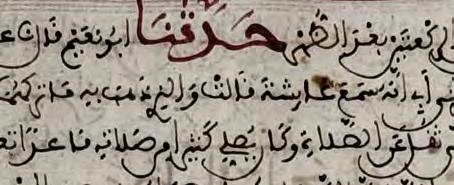 الركعتين بعد الظهر حدثنا ابو نعيم قال
ابي انه سمع عايشة قالت والذي ذهب به ما تركهما
ثقل عن الصلاة وكان يصلي كثيرا من صلاته قاعدا تع